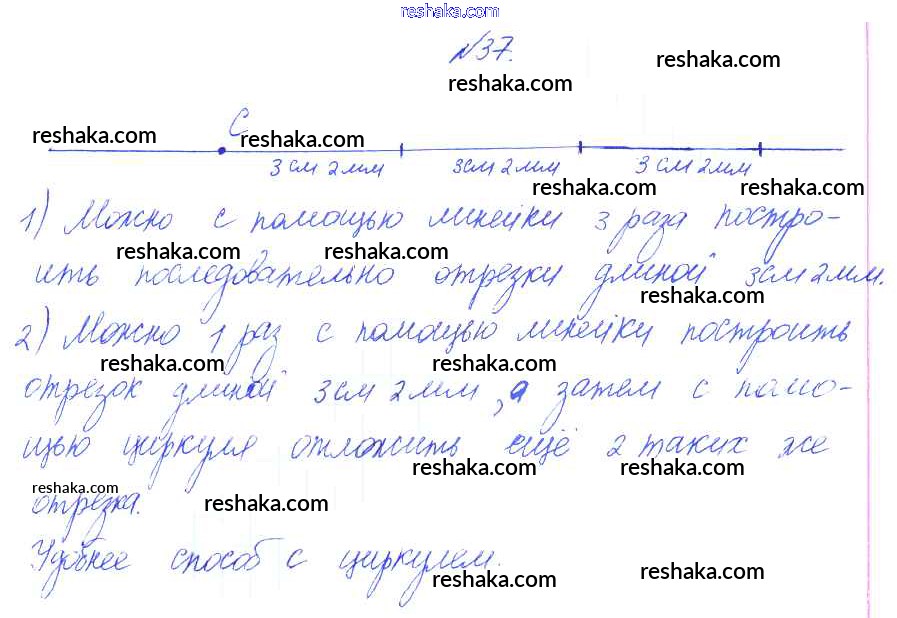 reshaka.com
№37.
reshaka.com
reshaka.com
C
reshaka.com
reshaka.com
3 см 2 мм 3 см 2 мм 3 см 2 мм
reshaka.com reshaka.com
1) Можно с помощью линейки 3 раза постро-
reshaka.com reshaka.com
ить последовательно отрезки длиной 3 см 2 мм.
reshaka.com
2) Можно 1 раз с помощью линейки построить
reshaka.com reshaka.com
отрезок длиной 3 см 2 мм, а затем с помо-
щью циркуля отложить ещё 2 таких же
reshaka.com reshaka.com
reshaka.com
отрезка.
reshaka.com
Удобнее способ с циркулем.
reshaka.com reshaka.com